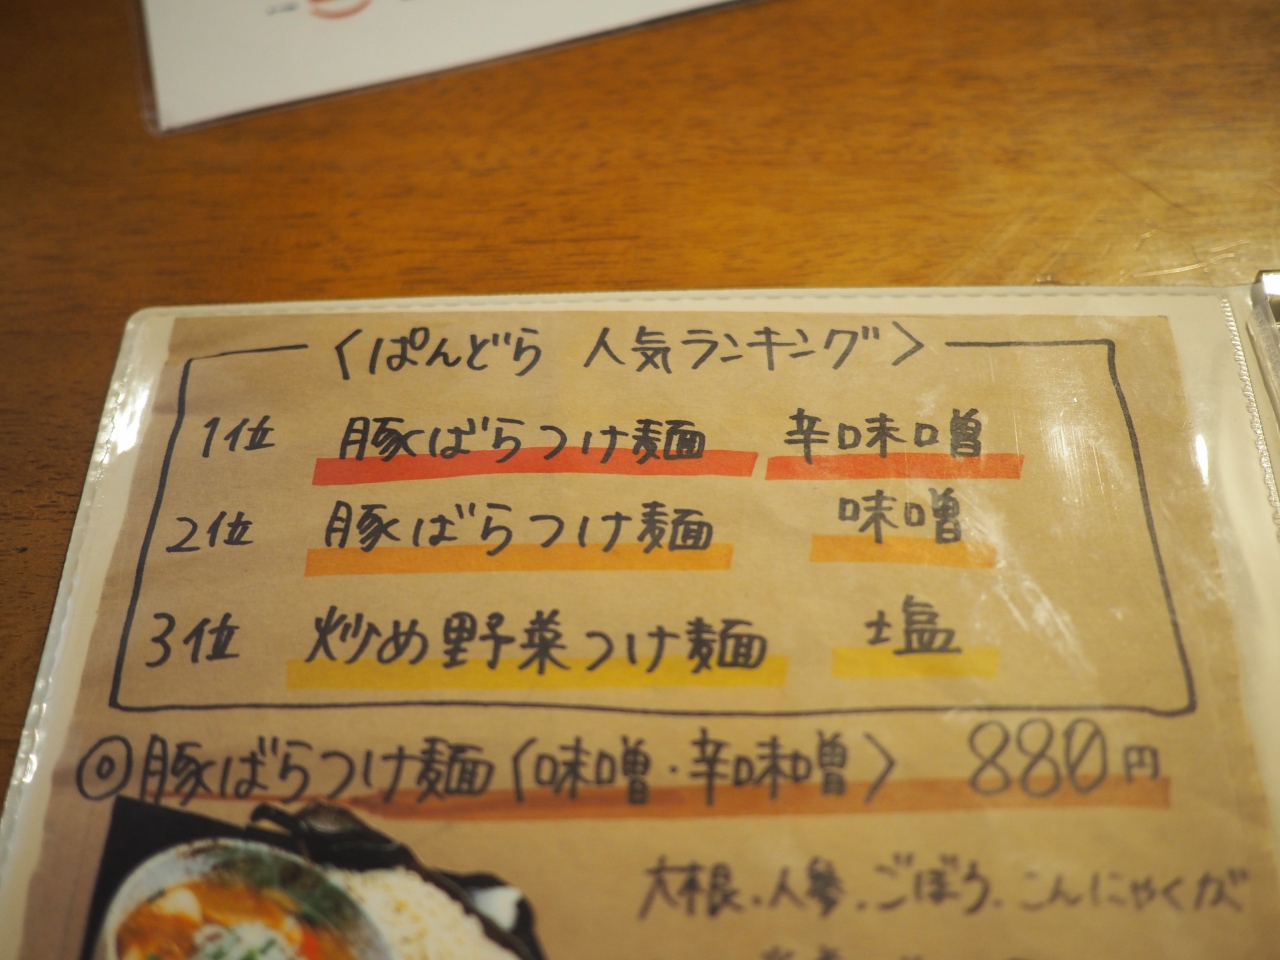 〈ぱんどら 人気ランキング〉
1位 豚ばらつけ麺 辛口味噌
2位 豚ばらつけ麺 味噌
3位 炒め野菜つけ麺 塩
◎豚ばらつけ麺〈味噌・辛味噌〉 880円
大根、人参、ごぼう、こんにゃくが